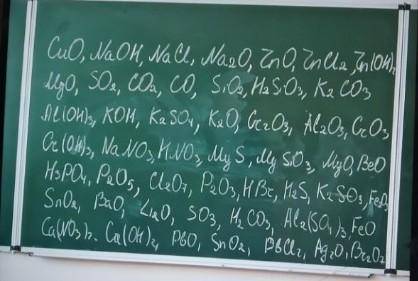 CuO, NaOH, NaCl, Na2O, ZnO, ZnCl2, Zn(OH)2
MgO, SO2, CO2, CO, SiO2, H2SO3, K2CO3
Al(OH)3, KOH, K2SO4, K2O, Cr2O3, Al2O3, CrO3
Cr(OH)3, NaNO3, HNO3, MgS, MgSiO3, MgO, BeO
H3PO4, P2O5, Cl2O7, P2O3, HBr, H2S, K2SO3,
SnO2, BaO, Li2O, SO3, H2CO3, Al2(SO4)3, FeO
Ca(NO3)2, Ca(OH)2, PbO, SnO2, PbCl2, Ag2O,